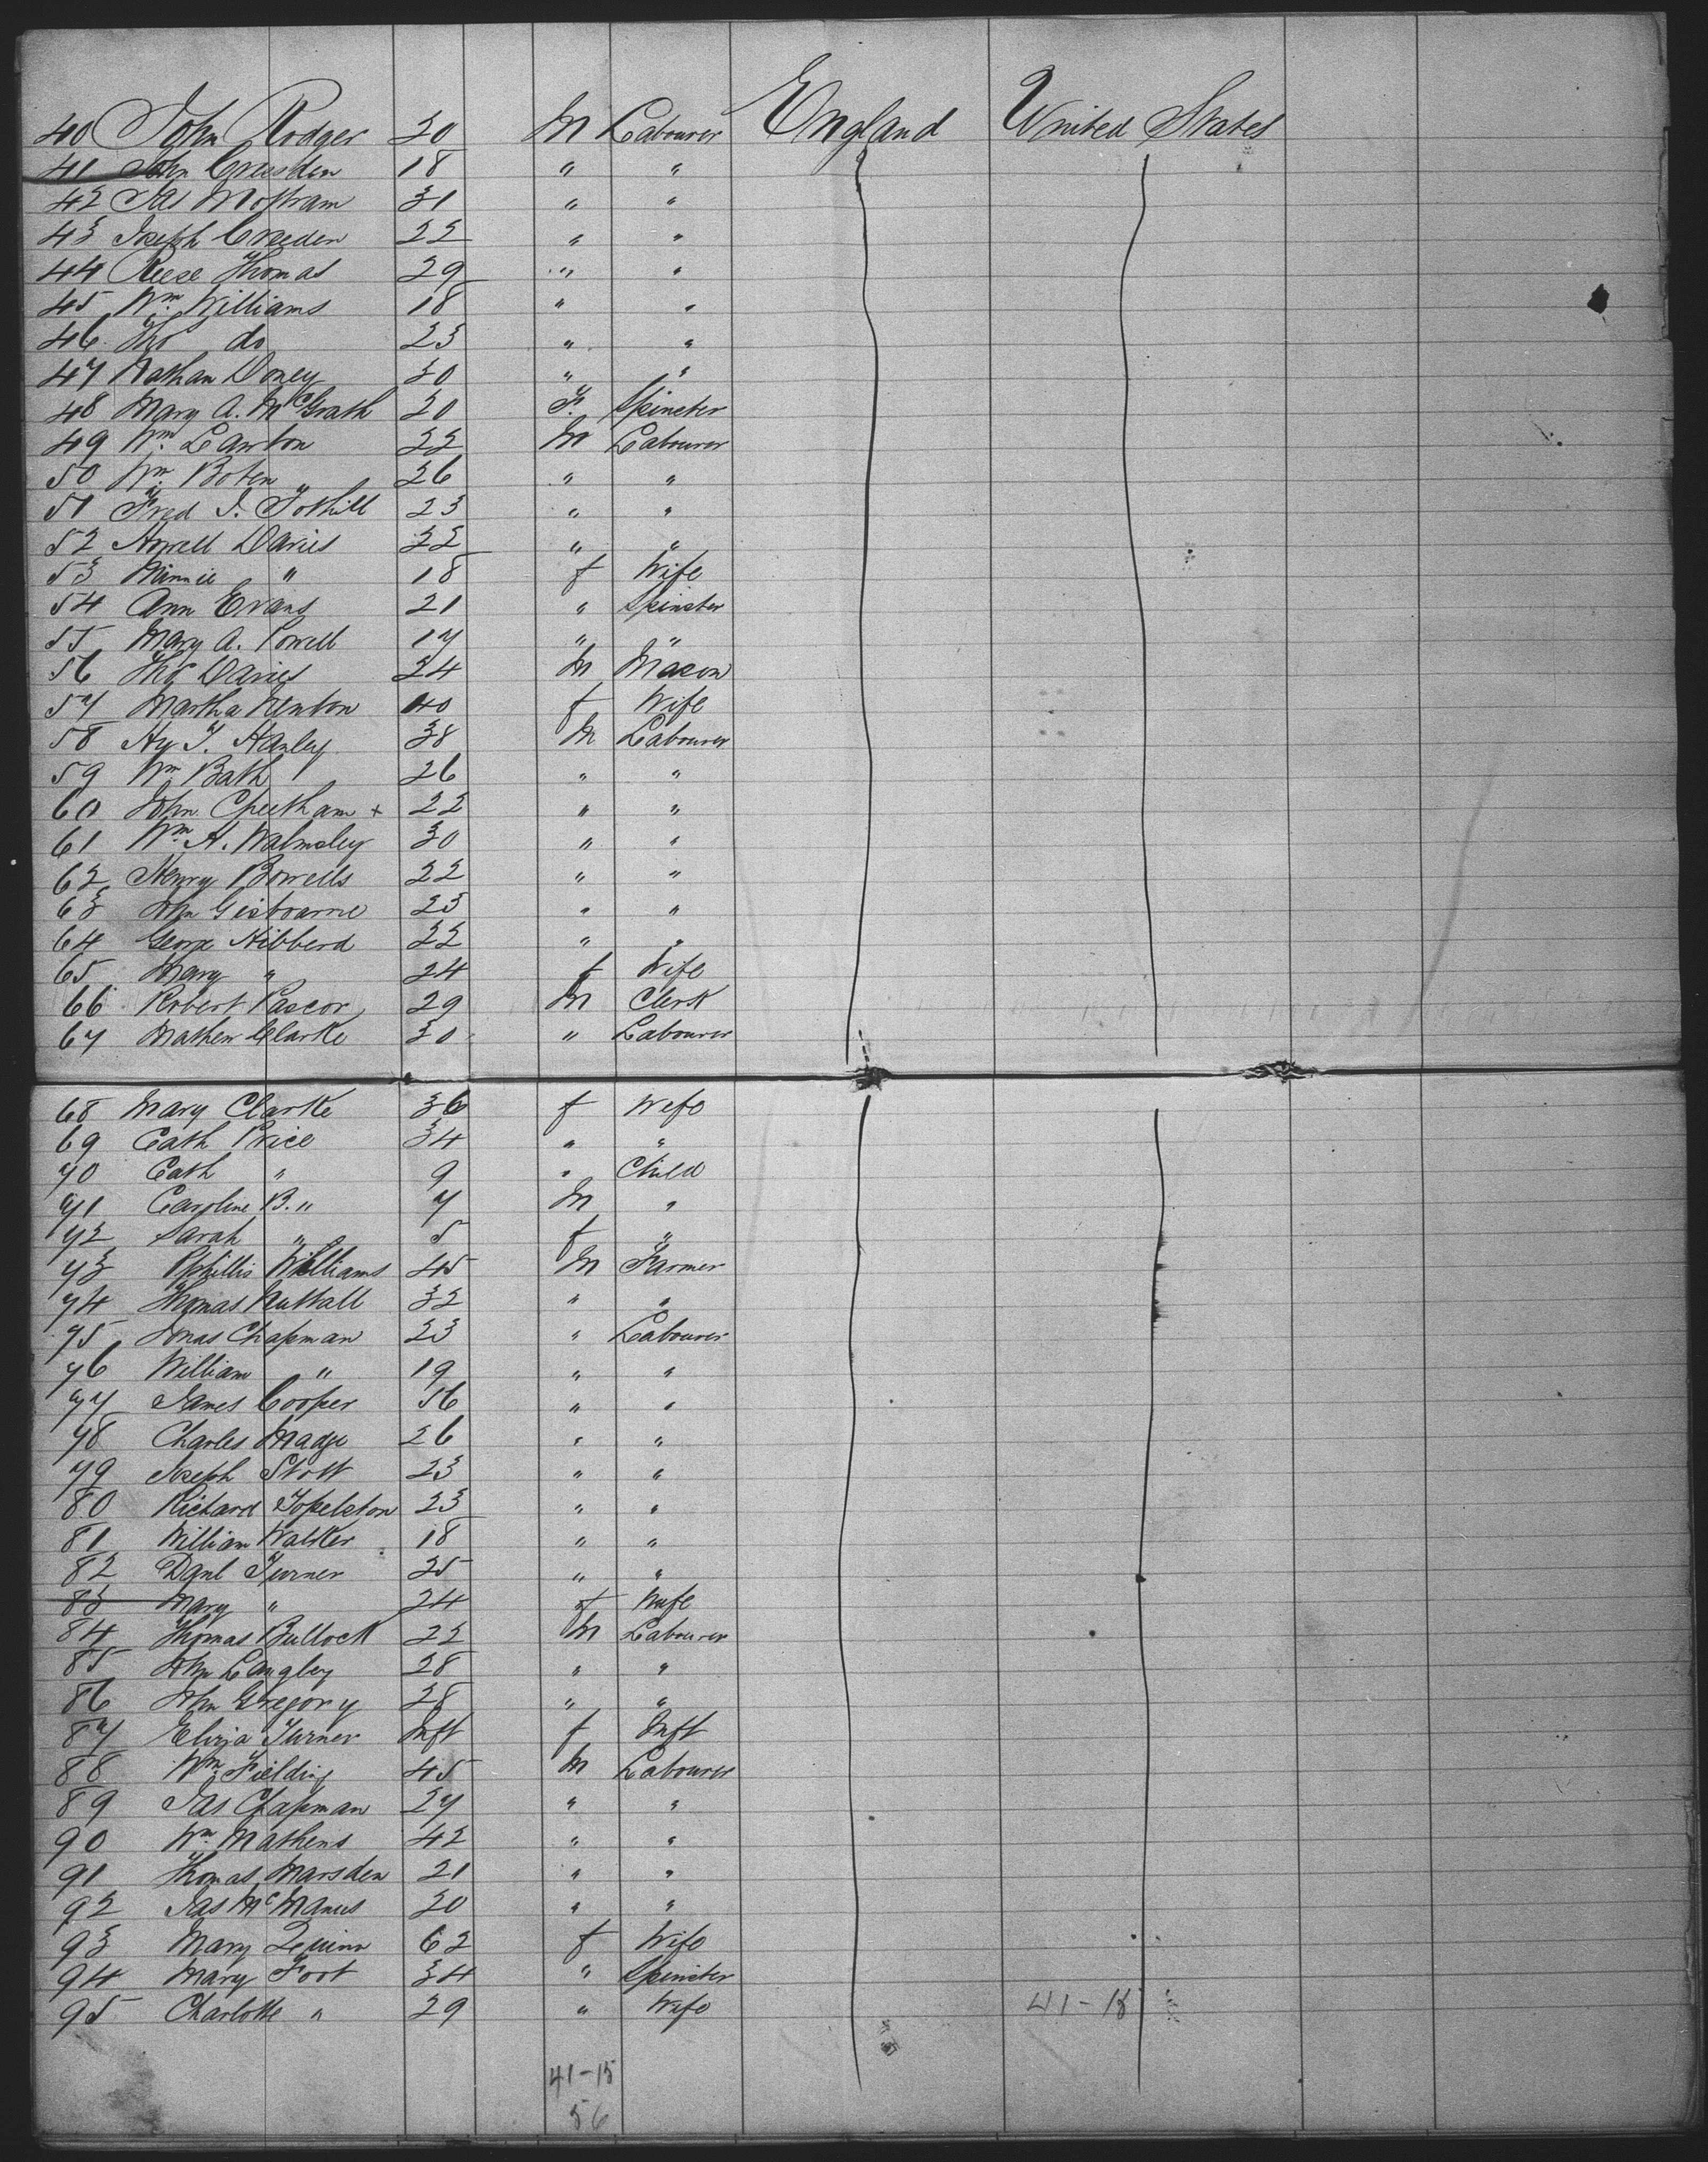 40 John Rodger 20 M Labourer England United States
41 John Creesden 18 " "
42 Jas Mostram 31 " "
43 Joseph Creeden 22 " "
44 Reese Thomas 29 " "
45 Wm Williams 18 " "
46 Tho do 23 " "
47 Nathan Doney 30 " "
48 Mary A. McGrath 20 F. Spinster
49 Wm Lawton 22 M Labourer
50 Wm Boten 26 " "
51 Fred J. Tothill 23 " "
52 Howell Davies 22 " "
53 Minnie " 18 f Wife
54 Ann Evans 21 " Spinster
55 Mary A. Powell 17 " "
56 Tho Davies 24 M Mason
57 Martha Newton 40 f Wife
58 Hy T. Hanley 38 M Labourer
59 Wm Bath 26 " "
60 John Cheetham + 22 " "
61 Wm H. Walmsley 30 " "
62 Henry Bowells 22 " "
63 John Gisbourne 23 " "
64 George Hibberd 22 " "
65 Mary " 24 f Wife
66 Robert Pascor 29 M Clerk
67 Mathew Clarke 30 " Labourer
68 Mary Clarke 36 f Wife
69 Cath Price 34 " "
70 Cath " 9 " Child
71 Caroline B. " 7 M "
72 Sarah " 5 f "
73 Phillis Williams 45 M Farmer
74 Thomas Nuthall 32 " "
75 Jonas Chapman 23 " Labourer
76 William " 19 " "
77 James Cooper 56 " "
78 Charles Madge 26 " "
79 Joseph Stott 23 " "
80 Richard Topelston 23 " "
81 William Walker 18 " "
82 Danl Turner 25 " "
83 Mary " 24 f Wife
84 Thomas Bullock 22 M Labourer
85 John Langley 28 " "
86 John Gregory 28 " "
87 Eliza Turner Inft f Inft
88 Wm Fielding 45 M Labourer
89 Jas Chapman 27 " "
90 Wm Mathens 42 " "
91 Thomas Marsden 21 " "
92 Jas McManus 20 " "
93 Mary Quinn 62 f Wife
94 Mary Foot 34 " Spinster
95 Charlotte " 29 " Wife 41-18
41-15
56